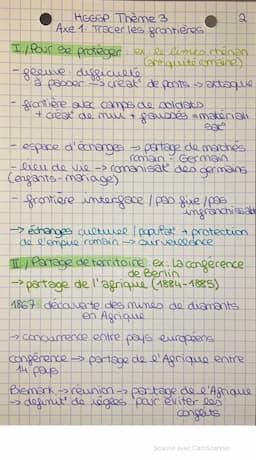 HGGSP Thème 3
2
Axe 1: Tracer les frontières
I / Pour se protéger : ex le limes rhénan
(antiquité romaine)
- fleuve difficulté
à passer → créat° de ponts → attaque
- frontière avec camps de soldats
+ créat° de mur + fossés = matériali
sat°
- espace d'échanges → partage de marchés
romain - Germain
- lieu de vie → romanisat° des germains
(enfants - mariage)
- frontière interface / pas fixe / pas
infranchissable
→ échanges culturel / populat° + protection
de l'empire romain → surveillance
II / Partage de territoire : ex : La conférence
de Berlin
→ partage de l'afrique (1884-1885)
1867 : découverte des mines de diamants
en Afrique
→ concurrence entre pays européens
conférence → partage de l'Afrique entre
14 pays
Bismark → réunion → partage de l'Afrique
→ définit° de règles pour éviter les
conflits
Scanné avec CamScanner